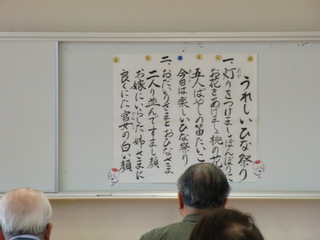 うれしいひな祭り
一、灯りをつけましょぼんぼりに
お花をあげましょ桃の花
五人ばやしの笛たいこ
今日は楽しいひな祭り
二、おだいりさまとおひなさま
二人並んですまし顔
お嫁にいらした姉さまに
良くにた官女の白い顔